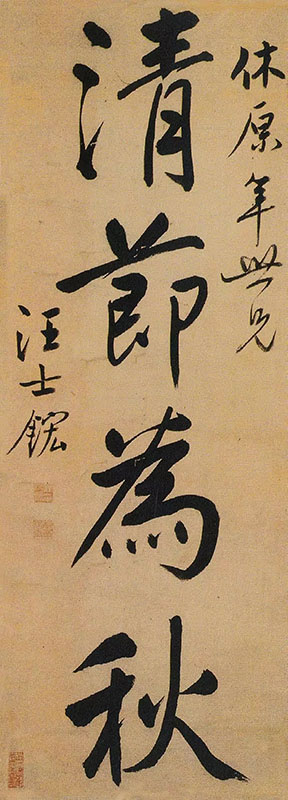 休原年世兄
清節為秋
汪士鋐